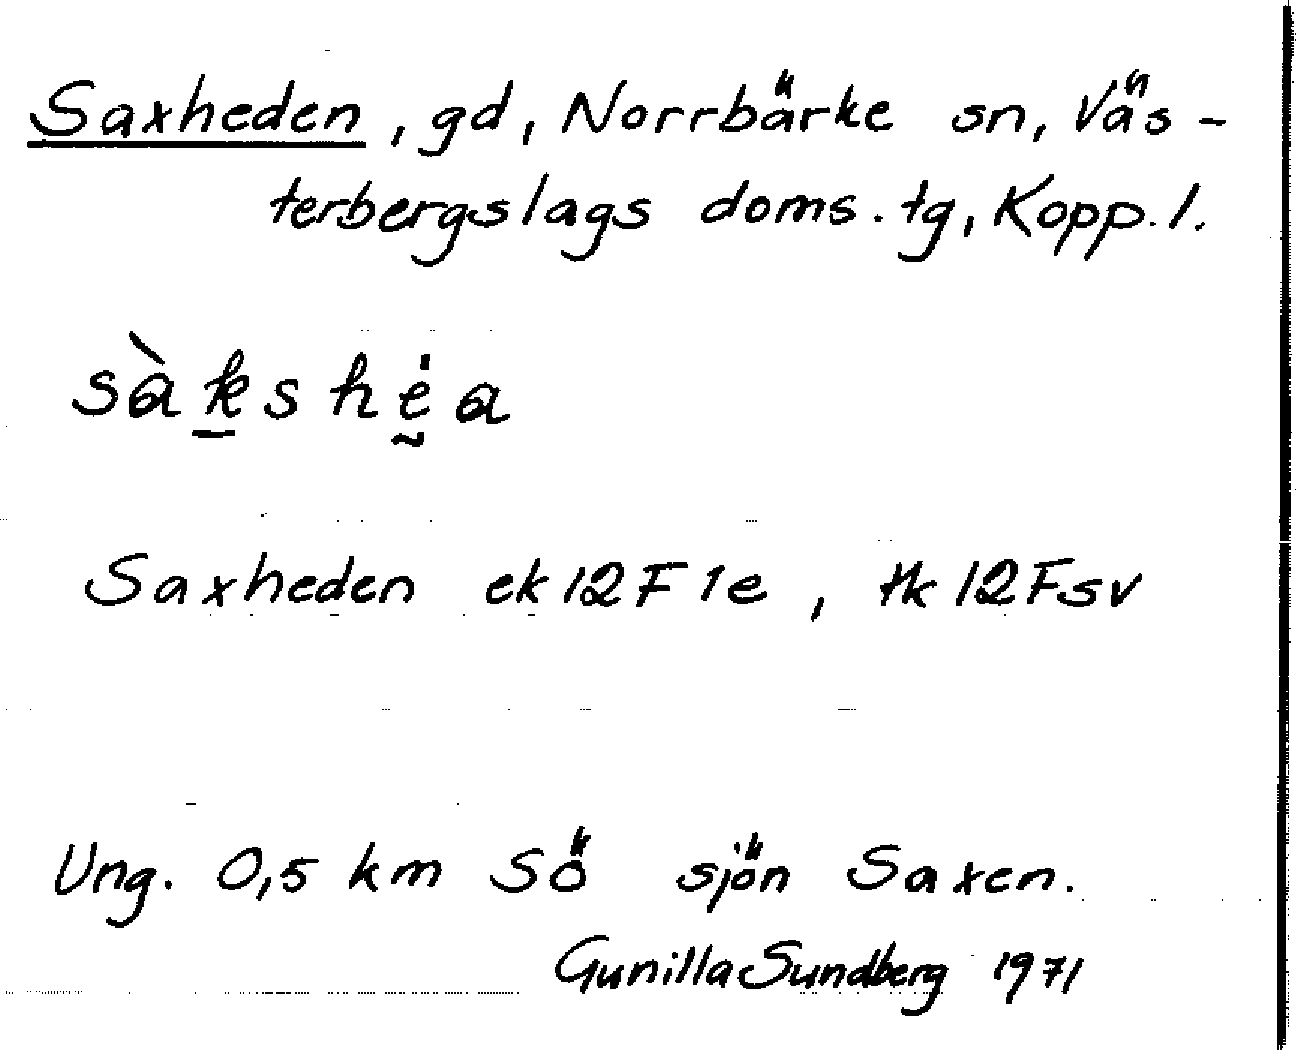 Saxheden, gd, Norrbärke sn, Väs-
terbergslags doms. tg, Kopp. l.
sàḵshḛ̇a
Saxheden ek 12F 1e, tk 12F sv
Ung. 0,5 km SÖ sjön Saxen.
Gunilla Sundberg 1971